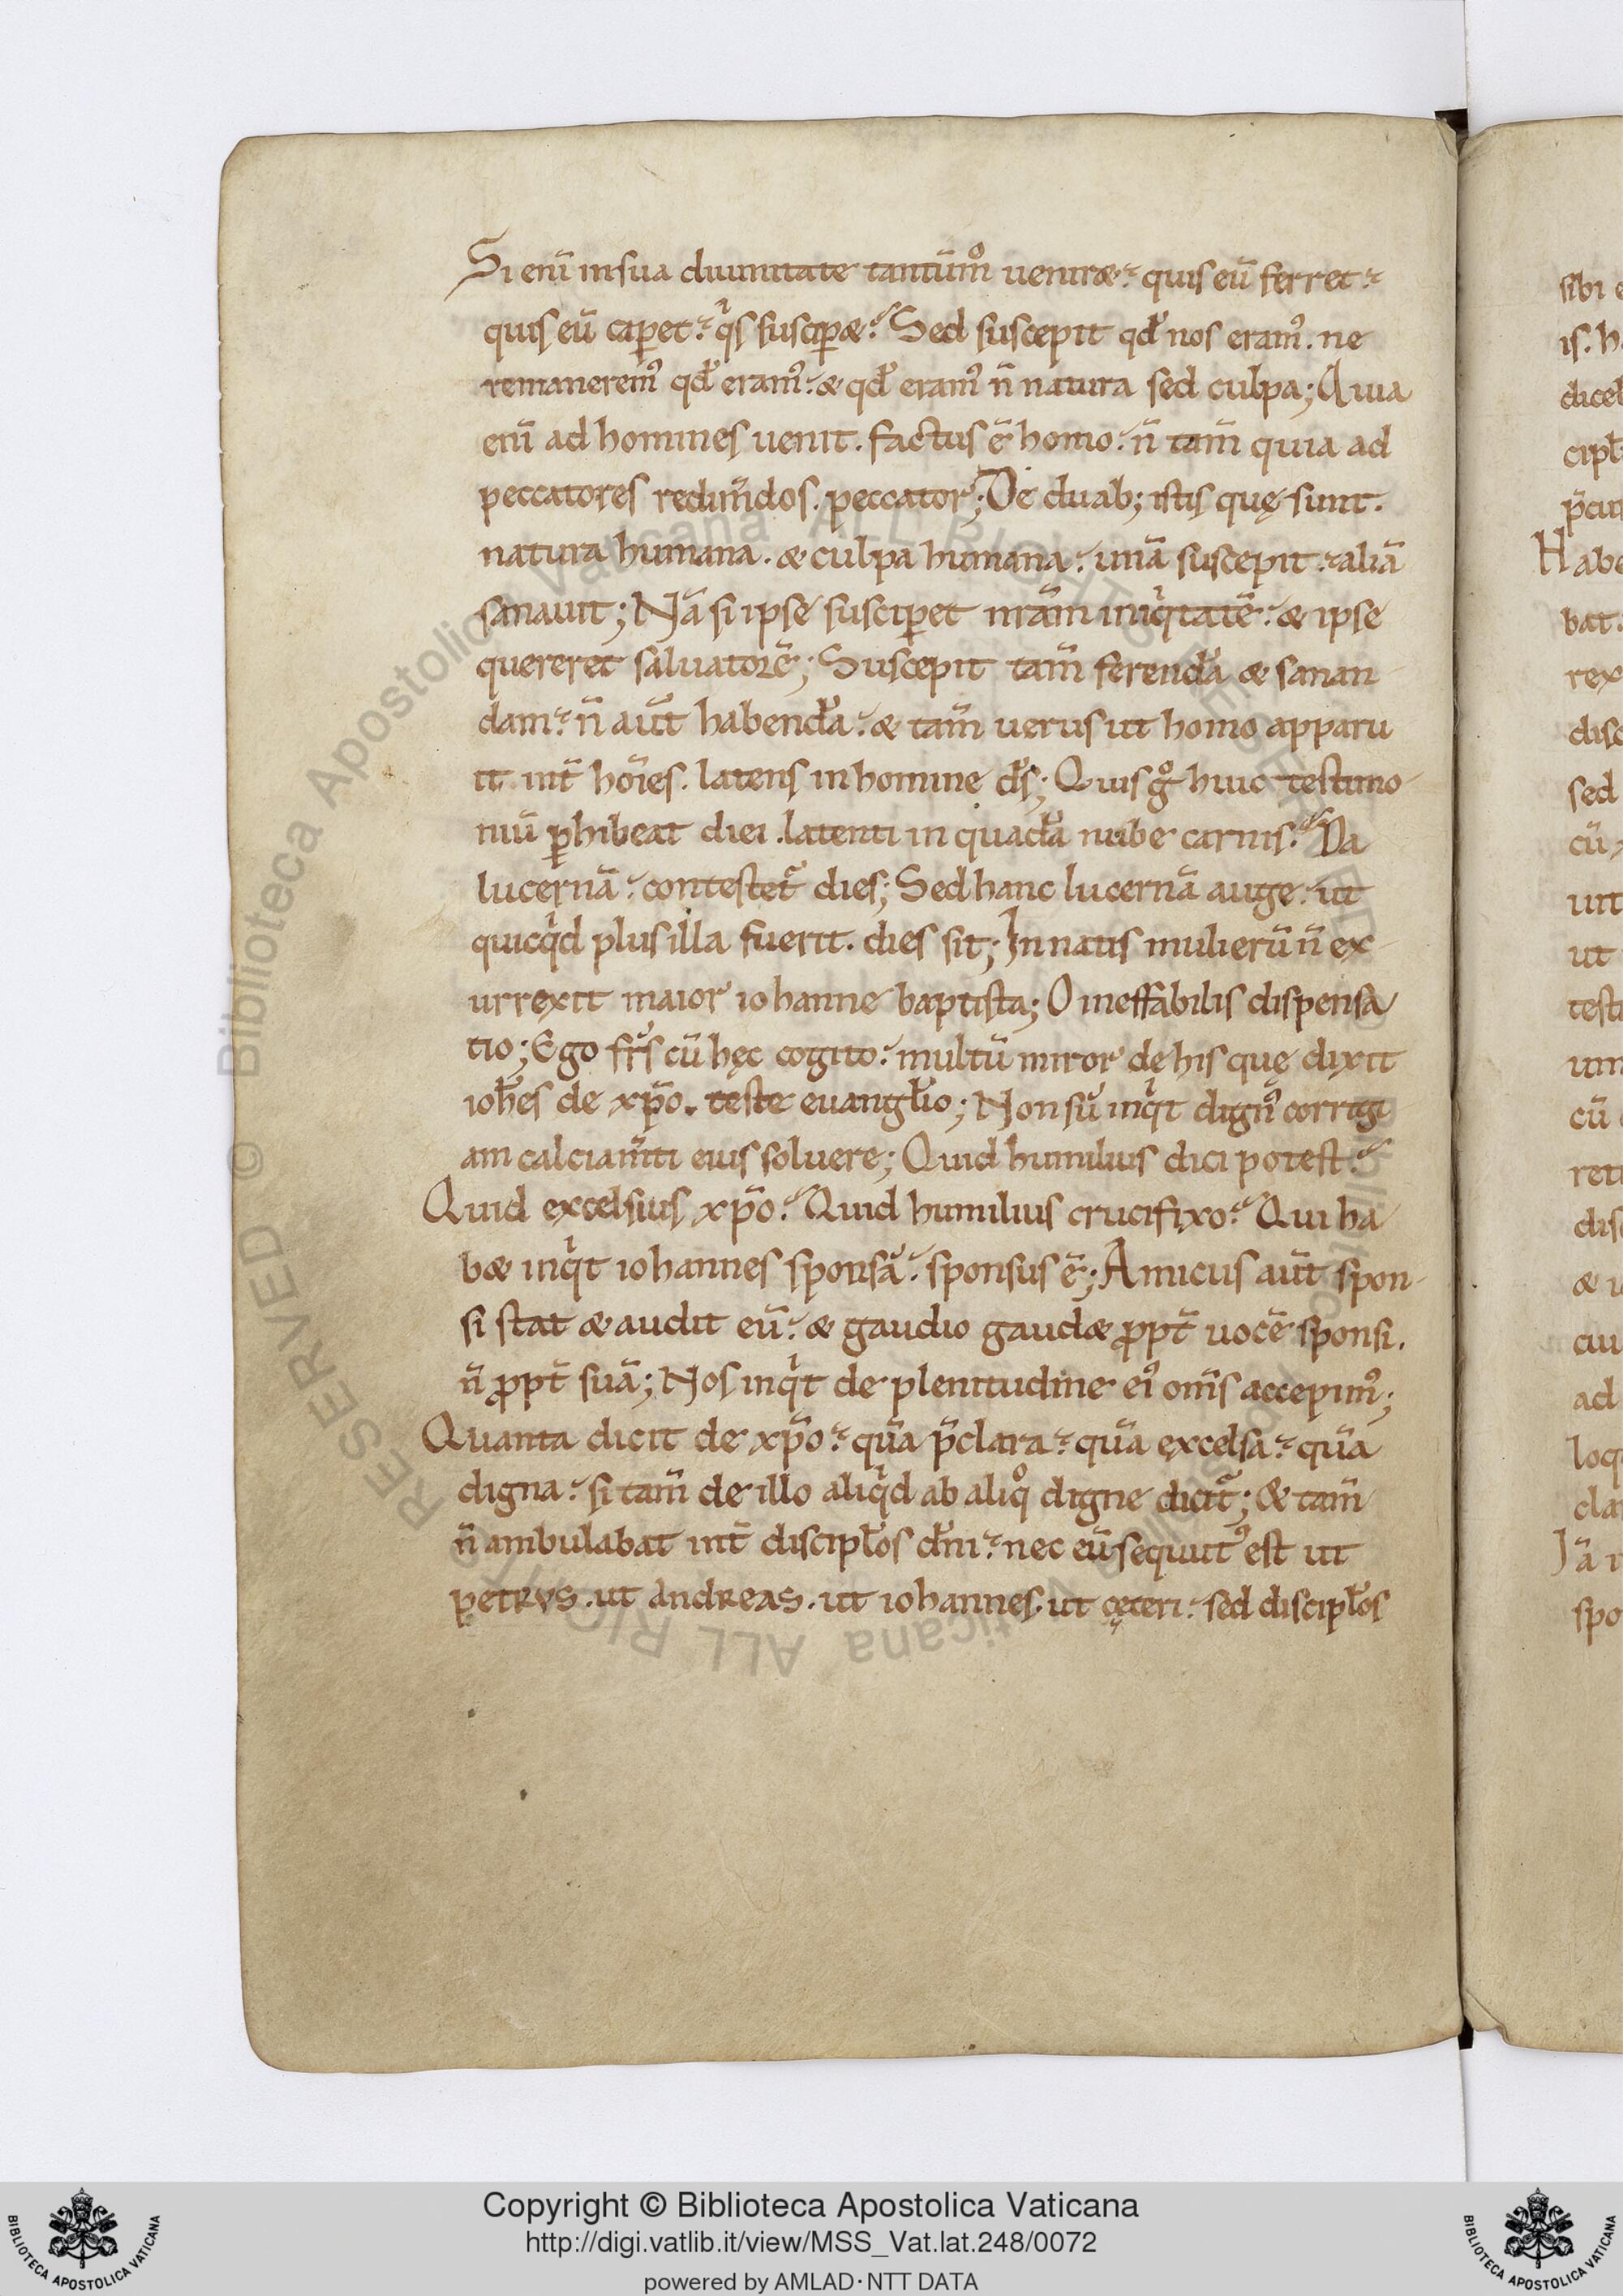 Si enī in sua diuinitate tantūm̊ uenir&. quis eū ferret.
quis eū cap̲et. qͥs suscip̲&. Sed suscepit qđ nos eramꝰ. ne
remaneremꝰ qđ eramꝰ. & qđ eramꝰ n̄ natura sed culpa; Quia
enī ad homines uenit. factus ē homo. n̄ tam̄ quia ad
peccatores redim̄dos. peccator; De duab; istis quę sunt.
natura humana. & culpa humana. unā suscepit. aliā
sanauit; Nā si ipse suscip̲et nrām iniqͥtatē. & ipse
quereret saluatorē; Suscepit tam̄ ferendā & sanan
dam. n̄ aūt habendā. & tam̄ uerus ut homo apparu
it int̄ hōıes. latens in homine d̄s; Quis g̊ huic testimo
niū p̲hibeat diei. latenti in quadā nube carnis. Da
lucernā. contestet᷑ dies; Sed hanc lucernā auge. ut
quicqͥd plus illa fuerit. dies sit; In natis mulierū n̄ ex
urrexit maior iohanne baptista; O ineffabilis dispensa
tio; Ego fr̄s cū hęc cogito. multū miror de his quę dixit
ioh̄es de xp̄o. teste euangl̄io; Non sū inqͥt dignꝰ corrigi
am calciam̄ti eius soluere; Quid humilius dici potest.
Quid excelsius xp̄o. Quid humilius crucifixo. Qui ha
b& inqͥt iohannes sponsā. sponsus ē; Amicus aūt spon
si stat & audit eū. & gaudio gaud& ꝓpt̄ uocē sponsi.
n̄ ꝓpt̄ suā; Nos inqͥt de plenitudine eiꝰ om̄s accepimꝰ;
Quanta dicit de xp̄o. quā p̄clara. quā excelsa. quā
digna. si tam̄ de illo aliqͥd ab aliq̊ digne dicit᷑; & tam̄
n̄ ambulabat int̄ discipl̄os dn̄i. nec eū sequutꝰ est ut
petrus. ut andreas. ut iohannes. ut cęteri. sed discipl̄os
sibi
is.
dice
cipl
p̄cu
Habe
bat.
rex
disc
sed
cū
uit
ut
test
um
cū
ret
dis
&
cui
ad
loq
cla
Iā
spo
© Biblioteca Apostolica Vaticana ALL RIGHTS RESERVED
© Biblioteca Apostolica Vaticana ALL RIGHTS RESERVED
Copyright © Biblioteca Apostolica Vaticana
http://digi.vatlib.it/view/MSS_Vat.lat.248/0072
powered by AMLAD·NTT DATA
BIBLIOTECA APOSTOLICA VATICANA
BIBLIOTECA APOSTOLICA VATICANA